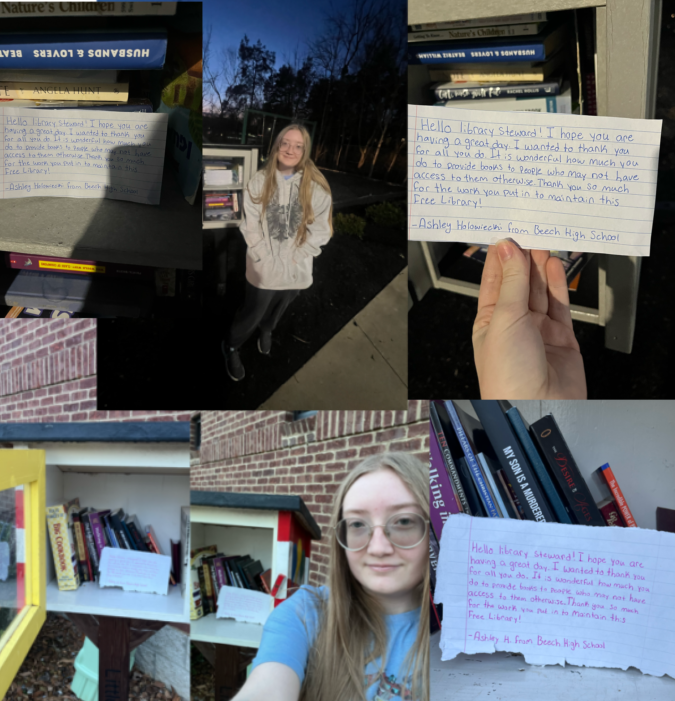 Nature's Children
HUSBANDS & LOVERS BEAT
ANGELA HUNT
Hello library Steward! I hope you are
having a great day. I wanted to thank you
for all you do. It is wonderful how much you
do to provide books to people who may not have
access to them otherwise. Thank you so much
for the work you put in to maintain this
Free Library!
-Ashley Holowiecki from Beech High School
Nature's Children
HUSBANDS & LOVERS
BEATRIZ WILLIAMS
Hello library Steward! I hope you are
having a great day. I wanted to thank you
for all you do. It is wonderful how much you
do to provide books to people who may not have
access to them otherwise. Thank you so much
for the work you put in to maintain this
Free Library!
-Ashley Holowiecki from Beech High School
THE COOKBOOK
Little
Walking in
MY SON IS A MURDERER
Hello library Steward! I hope you are
having a great day. I wanted to thank you
for all you do. It is wonderful how much you
do to provide books to people who may not have
access to them otherwise. Thank you so much
for the work you put in to maintain this
Free Library!
-Ashley H. From Beech High School